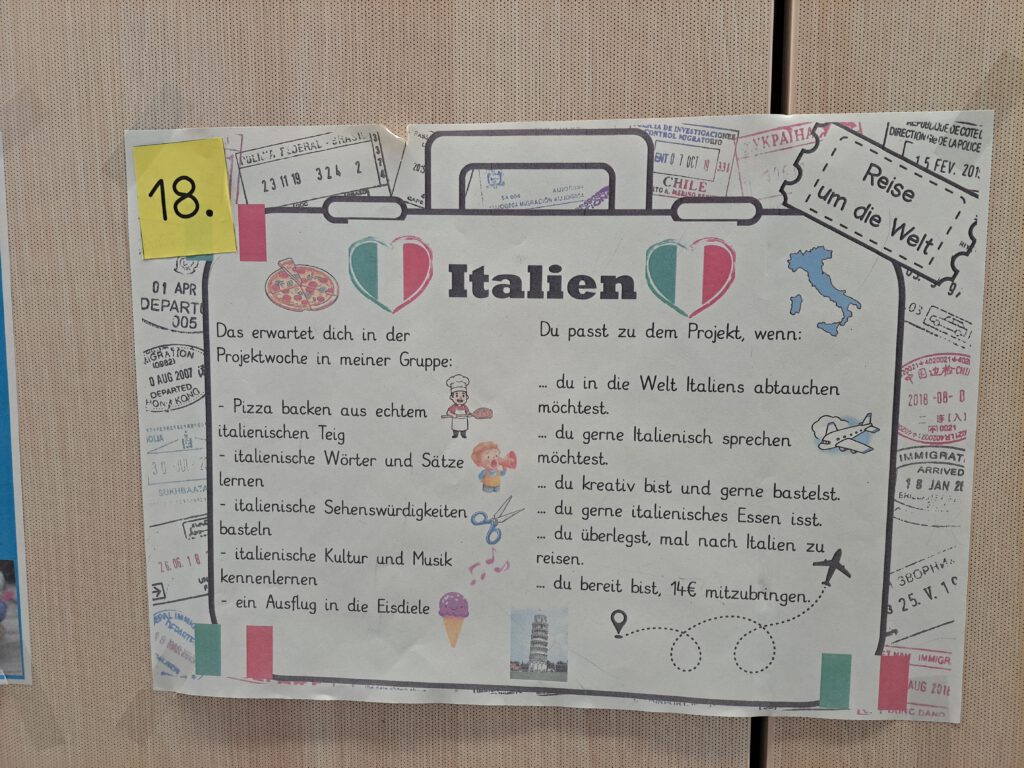 18.
POLICIA FEDERAL - BRASIL
23 11 19 324 2
CONTROL MIGRATORIO
CHILE
УКРАЇНА
DIRECTION DE LA POLICE
15 FEV. 201
Reise
um die Welt
Italien
Das erwartet dich in der
Projektwoche in meiner Gruppe:
- Pizza backen aus echtem
italienischen Teig
- italienische Wörter und Sätze
lernen
- italienische Sehenswürdigkeiten
basteln
- italienische Kultur und Musik
kennenlernen
- ein Ausflug in die Eisdiele
Du passt zu dem Projekt, wenn:
... du in die Welt Italiens abtauchen
möchtest.
... du gerne Italienisch sprechen
möchtest.
... du kreativ bist und gerne bastelst.
... du gerne italienisches Essen isst.
... du überlegst, mal nach Italien zu
reisen.
... du bereit bist, 14€ mitzubringen.
01 APR
DEPARTU
005
(0982)
0 AUG 2007
DEPARTED
HONG KONG
26.06.18
2018-08-0
IMMIGRAT
ARRIVED
18 JAN 20
25. V. 1
IMMIGR
AUG 2016